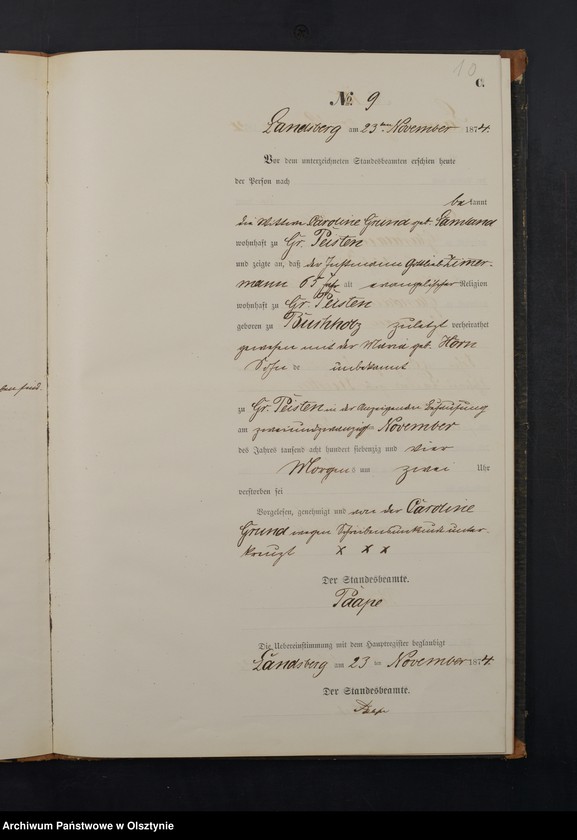 10
C.
No. 9
Landsberg am 23ten November 1874.
Vor dem unterzeichneten Standesbeamten erschien heute
der Person nach
bekannt
die Wittwe Caroline Grund geb. Samland
wohnhaft zu Gr. Peisten
und zeigte an, daß der Instmann Gottlieb Zimer-
mann 65 Jahr alt evangelischer Religion
wohnhaft zu Gr. Peisten
geboren zu Buchholz zuletzt verheirathet
gewesen mit der Maria geb. Horn
Sohn de unbekannt
zu Gr. Peisten in der Anzeigenden Behausung
am zweiundzwanzigst November
des Jahres tausend acht hundert siebenzig und vier
Morgens um zwei Uhr
verstorben sei
Vorgelesen, genehmigt und von der Caroline
Grund wegen Schreibensunkunde unter-
kreuzt x x x
Der Standesbeamte.
Paape
Die Uebereinstimmung mit dem Hauptregister beglaubigt
Landsberg am 23 ten November 1874.
Der Standesbeamte.
Paape
Archiwum Państwowe w Olsztynie